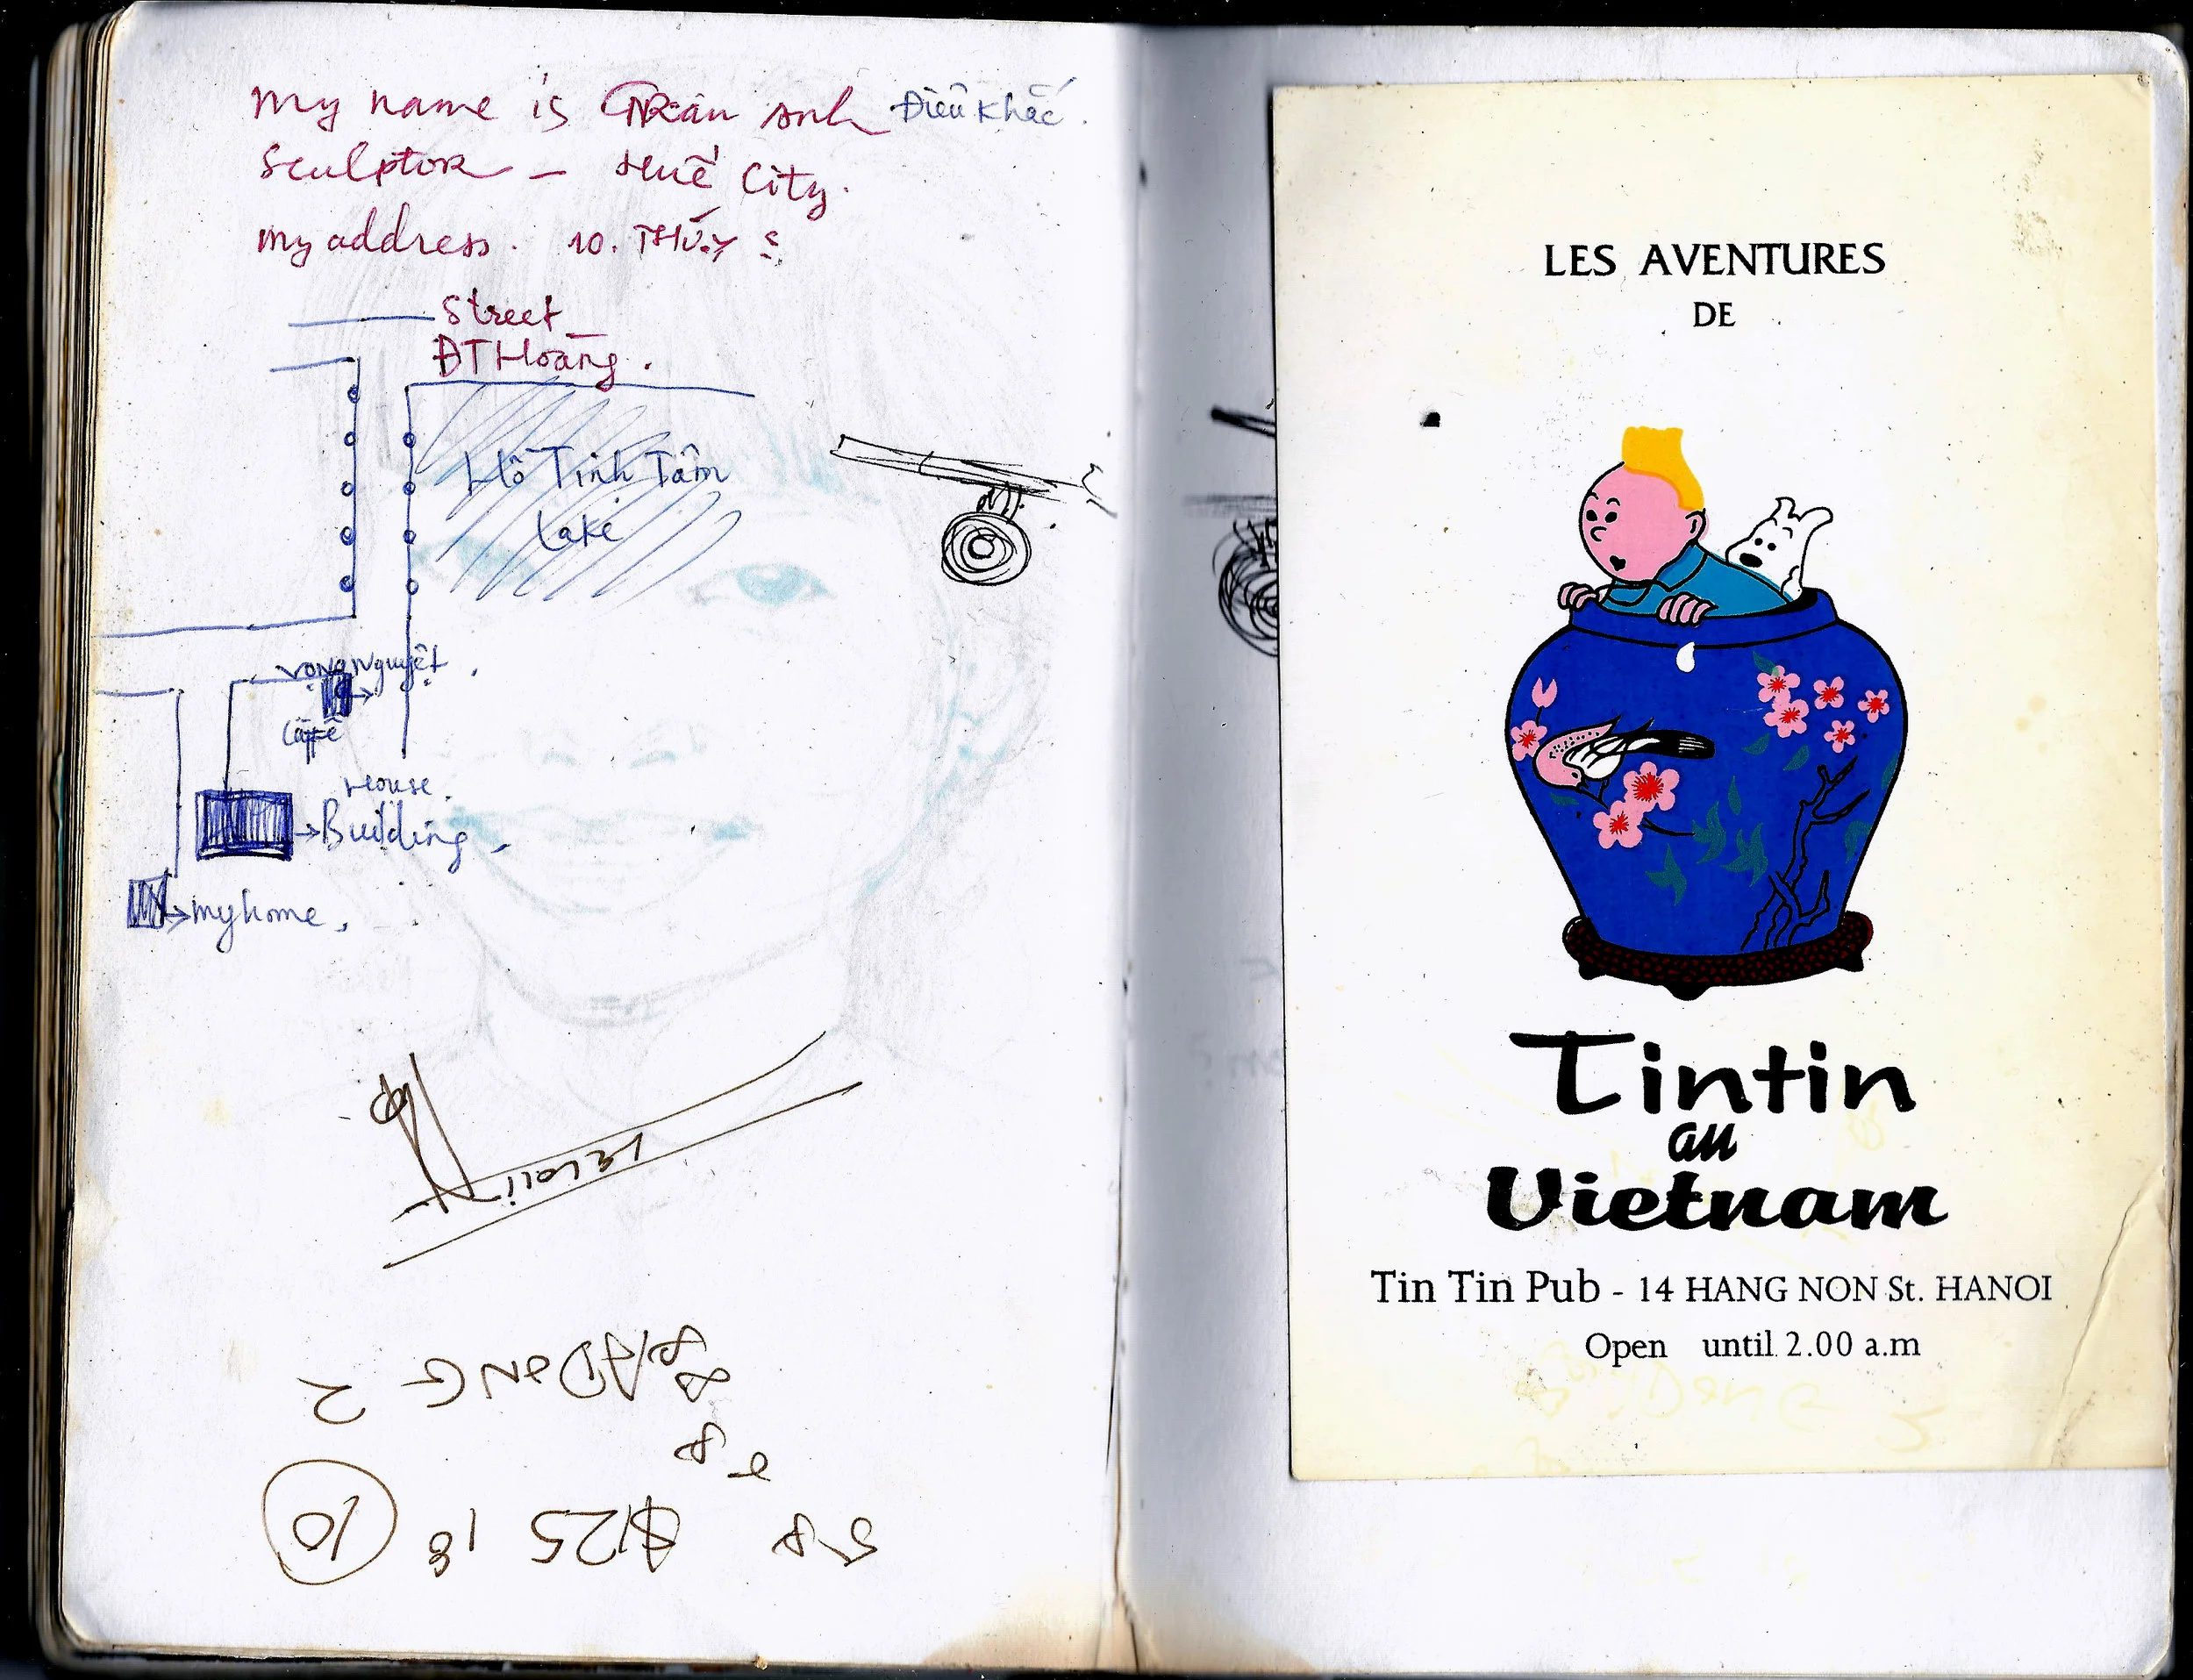 My name is Trần Anh Điêu Khắc.
Sculptor – Huế City.
My address. 10.
Street
ĐT Hoàng.
Hồ Tịnh Tâm
Lake
Vọng Nguyệt
Caffê
House.
Building
my home.
Le Loi
DANG 2
$125 18 10
LES AVENTURES
DE
Tintin
au
Vietnam
Tin Tin Pub - 14 HANG NON St. HANOI
Open until 2.00 a.m